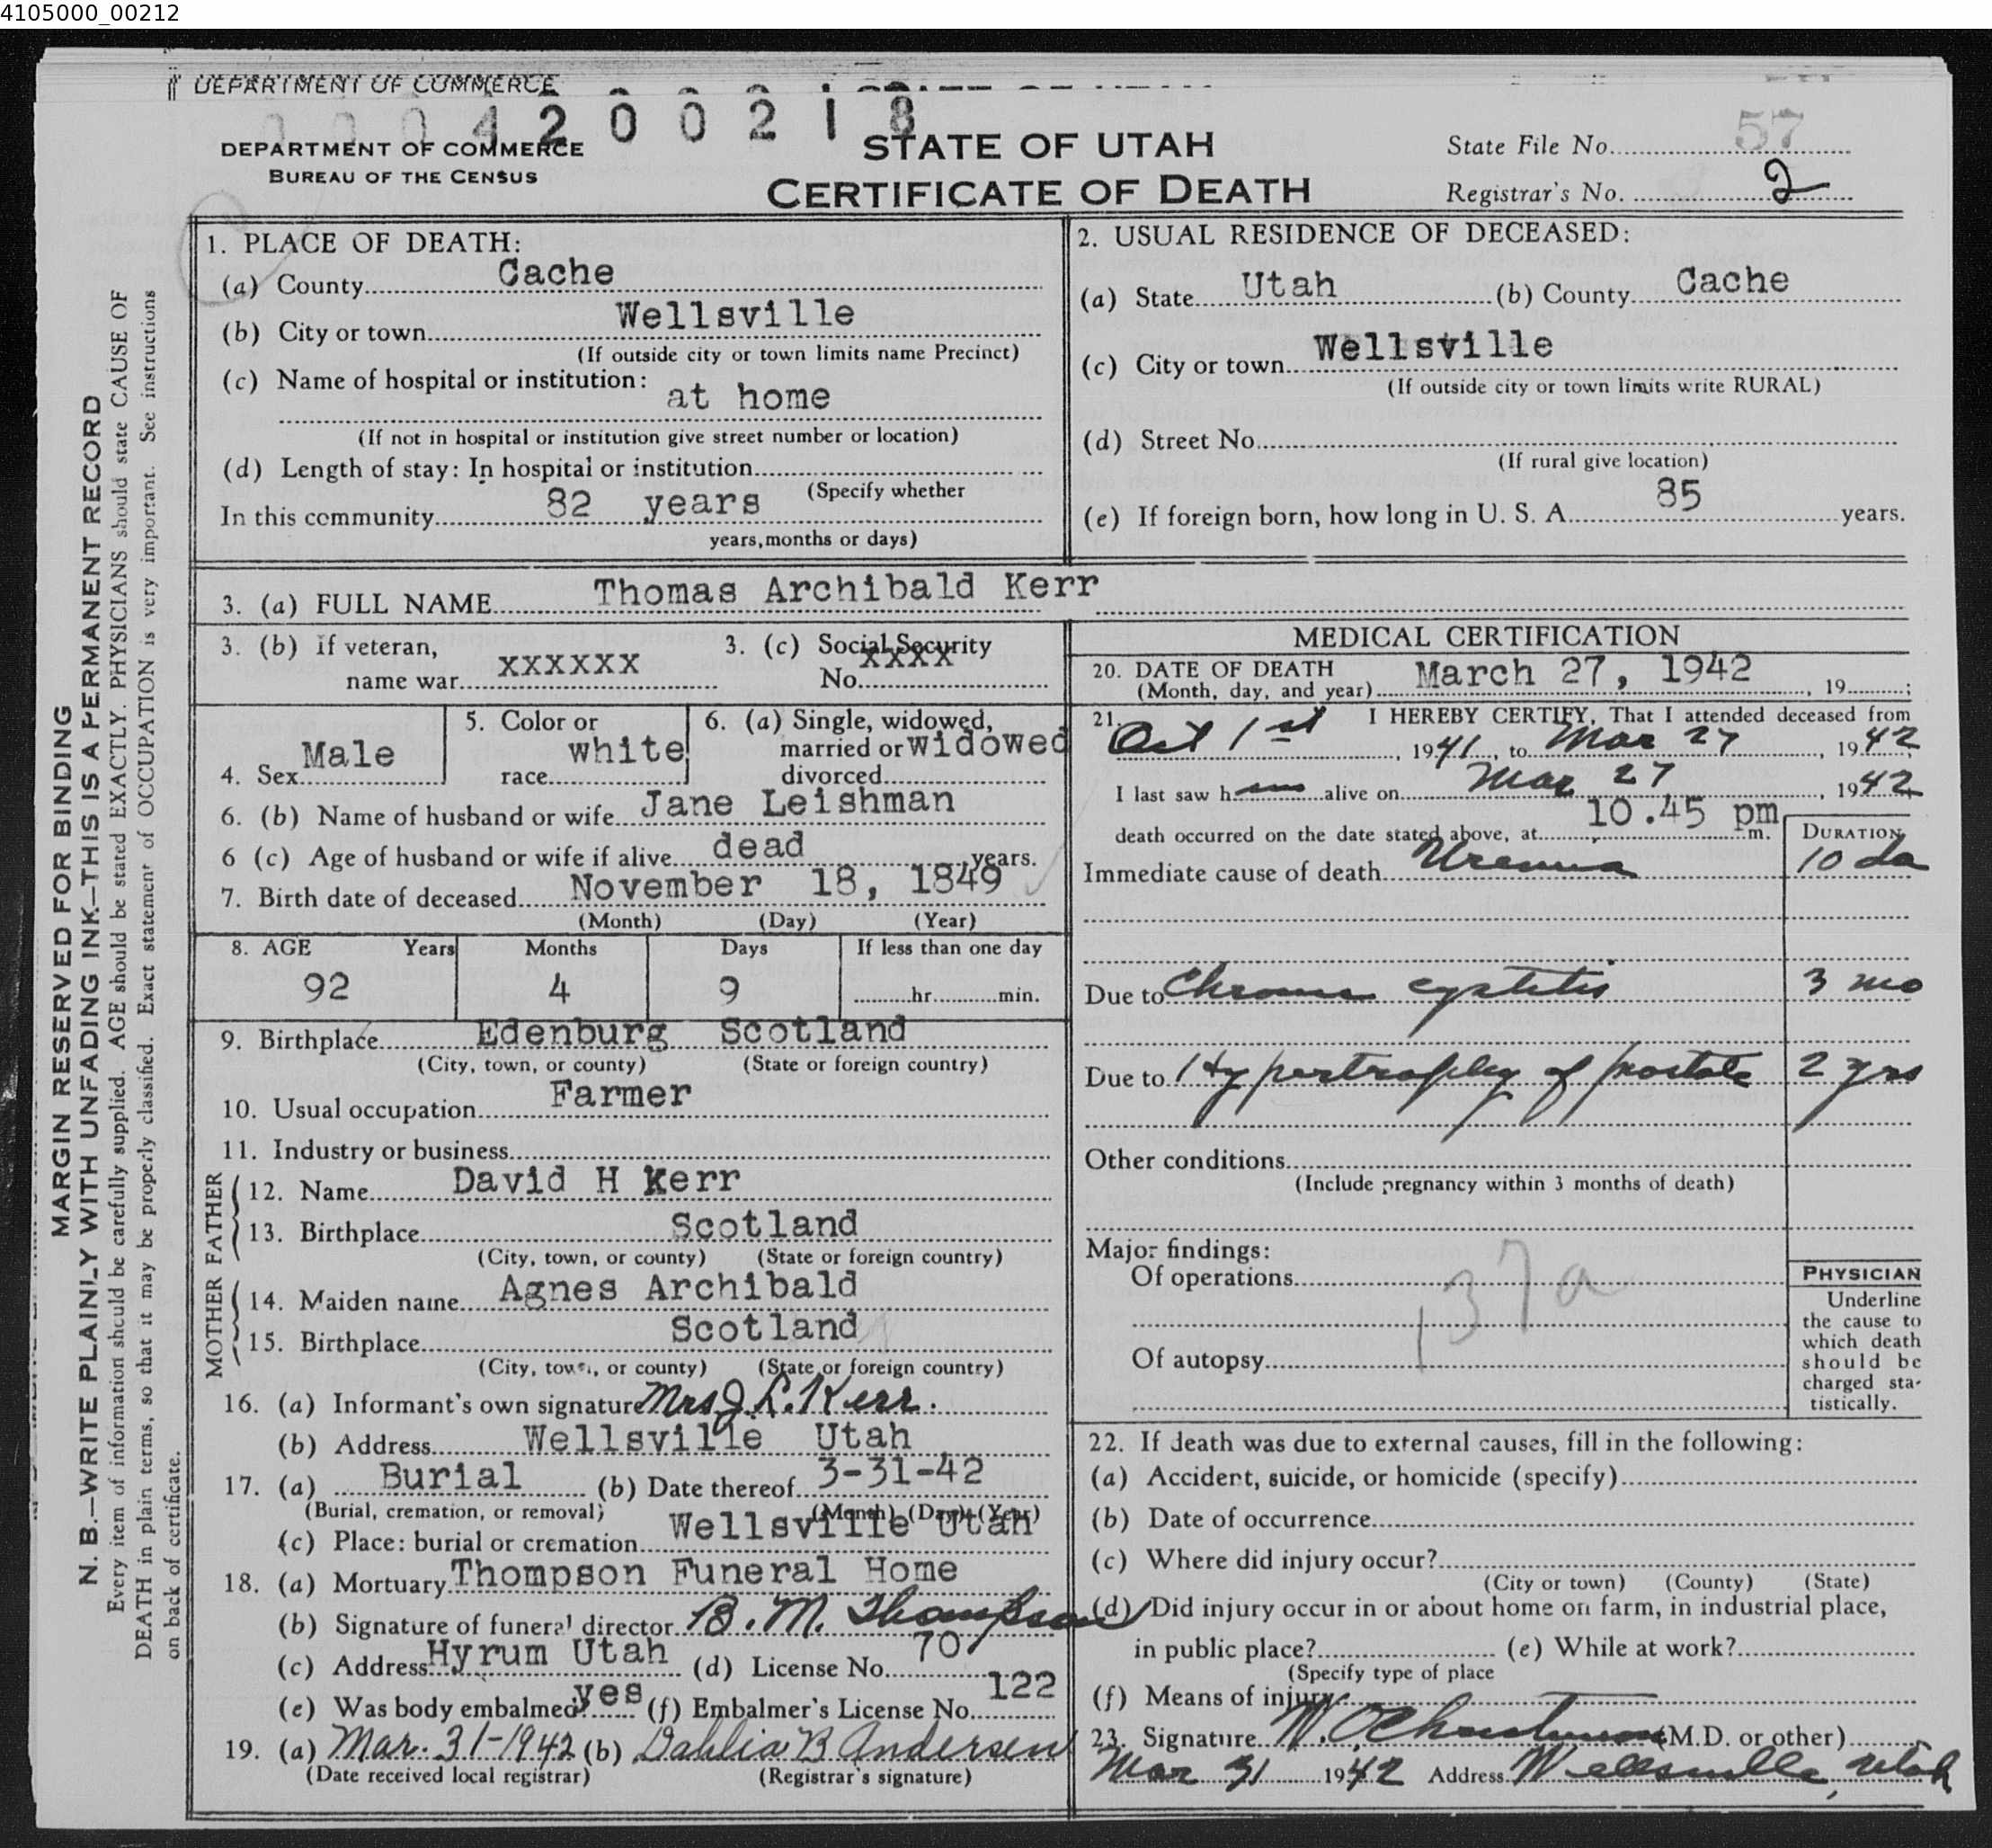 4105000_00212
DEPARTMENT OF COMMERCE
0004200218
DEPARTMENT OF COMMERCE
BUREAU OF THE CENSUS
STATE OF UTAH
CERTIFICATE OF DEATH
State File No. 57
Registrar's No. 2
MARGIN RESERVED FOR BINDING
N. B.—WRITE PLAINLY WITH UNFADING INK—THIS IS A PERMANENT RECORD
Every item of information should be carefully supplied. AGE should be stated EXACTLY. PHYSICIANS should state CAUSE OF
DEATH in plain terms, so that it may be properly classified. Exact statement of OCCUPATION is very important. See instructions
on back of certificate.
1. PLACE OF DEATH:
(a) County Cache
(b) City or town Wellsville
(If outside city or town limits name Precinct)
(c) Name of hospital or institution:
at home
(If not in hospital or institution give street number or location)
(d) Length of stay: In hospital or institution
(Specify whether
In this community 82 years
years, months or days)
2. USUAL RESIDENCE OF DECEASED:
(a) State Utah (b) County Cache
(c) City or town Wellsville
(If outside city or town limits write RURAL)
(d) Street No.
(If rural give location)
(e) If foreign born, how long in U. S. A. 85 years.
3. (a) FULL NAME Thomas Archibald Kerr
3. (b) If veteran,
name war xxxxxx
3. (c) Social Security
No. xxxx
4. Sex Male
5. Color or
race white
6. (a) Single, widowed,
married or widowed
divorced
6. (b) Name of husband or wife Jane Leishman
6 (c) Age of husband or wife if alive dead years.
7. Birth date of deceased November 18, 1849
(Month) (Day) (Year)
8. AGE Years Months Days If less than one day
92 4 9 hr. min.
9. Birthplace Edenburg Scotland
(City, town, or county) (State or foreign country)
10. Usual occupation Farmer
11. Industry or business
FATHER
12. Name David H Kerr
13. Birthplace Scotland
(City, town, or county) (State or foreign country)
MOTHER
14. Maiden name Agnes Archibald
15. Birthplace Scotland
(City, town, or county) (State or foreign country)
16. (a) Informant's own signature Mrs J. L. Kerr.
(b) Address Wellsville Utah
17. (a) Burial (b) Date thereof 3-31-42
(Burial, cremation, or removal) (Month) (Day) (Year)
(c) Place: burial or cremation Wellsville Utah
18. (a) Mortuary Thompson Funeral Home
(b) Signature of funeral director B. M. Thompson
(c) Address Hyrum Utah (d) License No. 70
(e) Was body embalmed? yes (f) Embalmer's License No. 122
19. (a) Mar. 31-1942 (b) Dahlia B Andersen
(Date received local registrar) (Registrar's signature)
MEDICAL CERTIFICATION
20. DATE OF DEATH
(Month, day, and year) March 27, 1942, 19 ;
21. I HEREBY CERTIFY, That I attended deceased from
Oct 1st, 1941, to Mar 27, 1942
I last saw him alive on Mar 27, 1942
death occurred on the date stated above, at 10.45 pm m.
DURATION
Immediate cause of death Uremia 10 da
Due to Chronic cystitis 3 mo
Due to Hypertrophy of prostate 2 yrs
Other conditions
(Include pregnancy within 3 months of death)
Major findings:
Of operations
137a
Of autopsy
PHYSICIAN
Underline
the cause to
which death
should be
charged sta-
tistically.
22. If death was due to external causes, fill in the following:
(a) Accident, suicide, or homicide (specify)
(b) Date of occurrence
(c) Where did injury occur?
(City or town) (County) (State)
(d) Did injury occur in or about home on farm, in industrial place,
in public place? (e) While at work?
(Specify type of place
(f) Means of injury
23. Signature W. O Christensen (M.D. or other)
Mar 31 1942 Address Wellsville, Utah